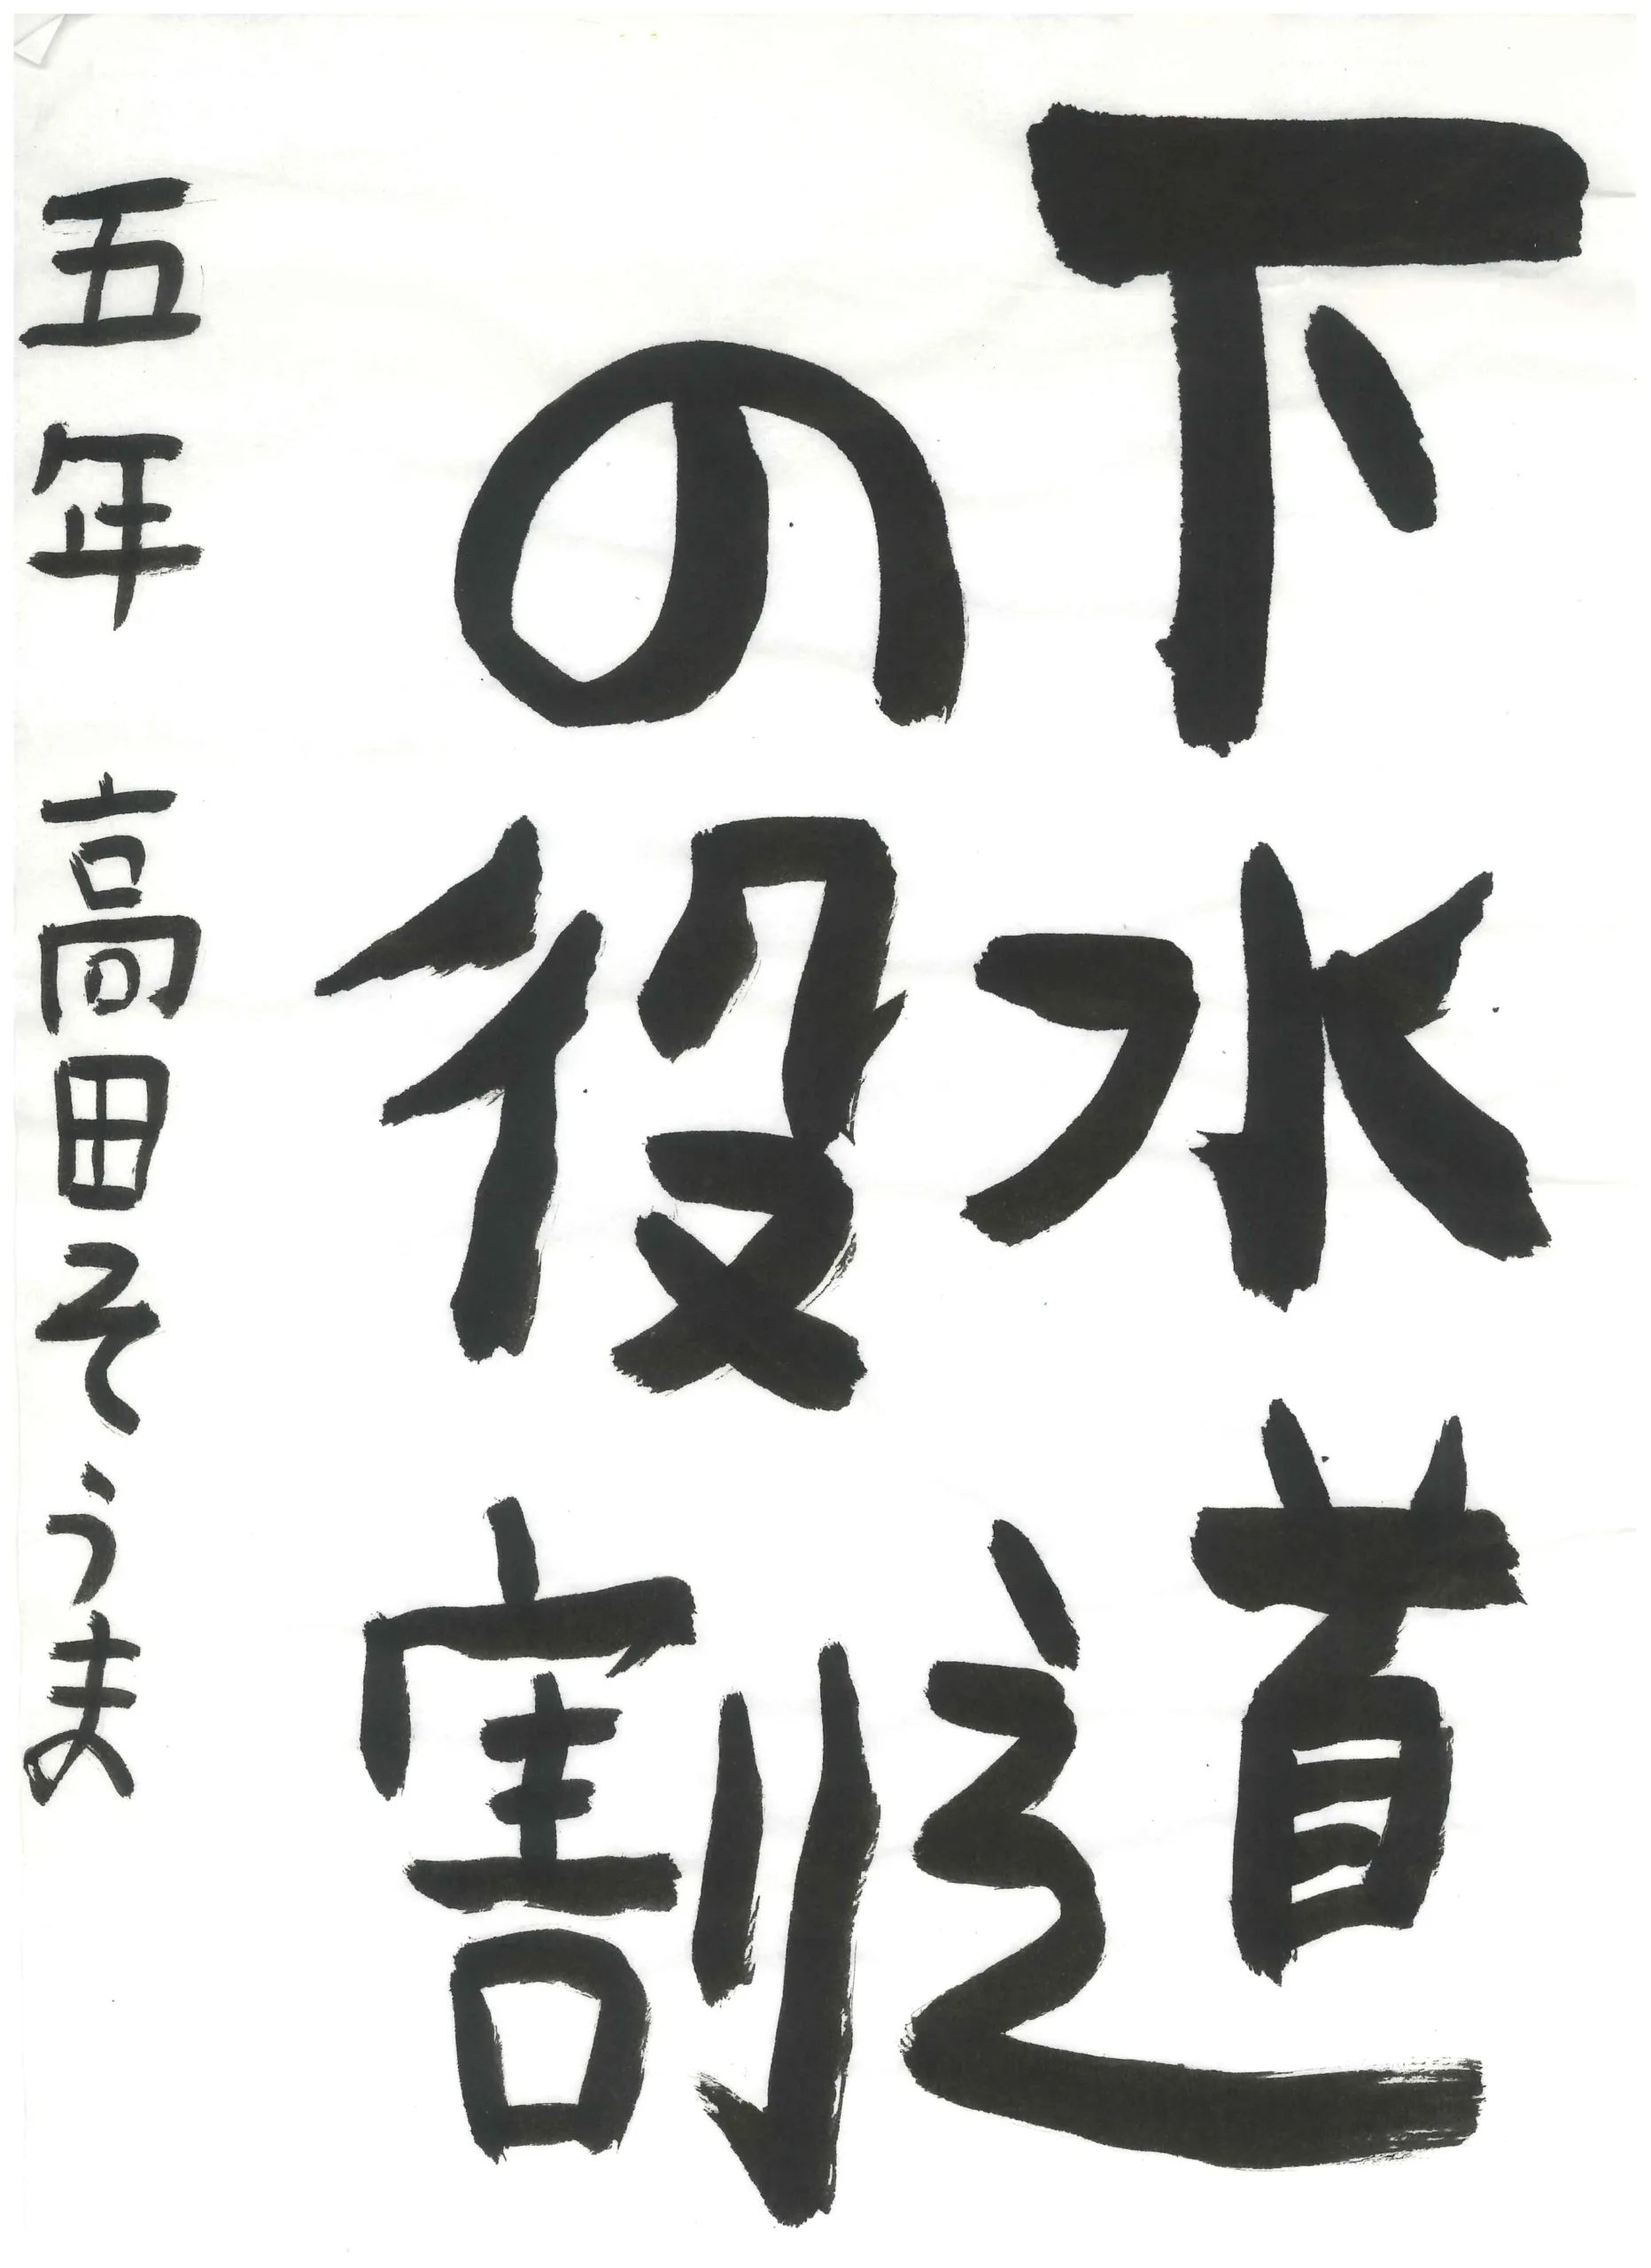 下水道
の役割
五年 高田そうま